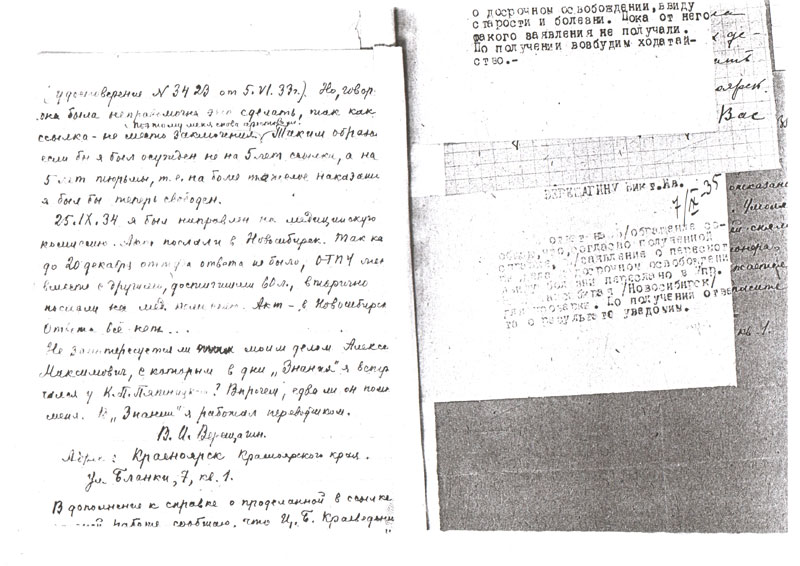 (удостоверения N 3423 от 5.VI.33г.). Но, говор
она была неправомочна это сделать, так как
ссылка - не место заключения. Таким образо
Поэтому меня снова арестовали
если бы я был осужден не на 5 лет ссылки, а на
5 лет тюрьмы, т.е. на более тяжелое наказани
я был бы теперь свободен.
25.IX.34 я был направлен на медицинскую
комиссию. Акт послали в Новосибирск. Так ка
до 20 декабря оттуда ответа не было, ОГПУ мен
вместе с другими, достигшими 60 л., вторично
послали на мед. комиссию. Акт - в Новосибирск
Ответа всё нет...
Не заинтересуется ли моим делом Алексе
Максимович, с которым в дни „Знания" я встре
чался у К.П. Пятницкого? Впрочем, едва ли он помн
меня. В „Знании" я работал переводчиком.
В. И. Верещагин.
Адрес: Красноярск Красноярского края.
Ул. Бланки, 7, кв. 1.
В дополнение к справке о проделанной в ссылке
работе сообщаю, что И. Б. Краеведени
о досрочном освобождении, ввиду
старости и болезни. Пока от него
такого заявления не получали.
По получении возбудим ходатай-
ство.-
Вас
ВЕРЕЩАГИНУ Викт. Ив.
7/IV 35
обращение со-
общаю, что, согласно полученной
справки, заявление о пересмот
досрочном освобождени
ввиду болезни переслано в Упр.
/Новосибирск/
По получении отве
та о результате уведомим.
кв 1.